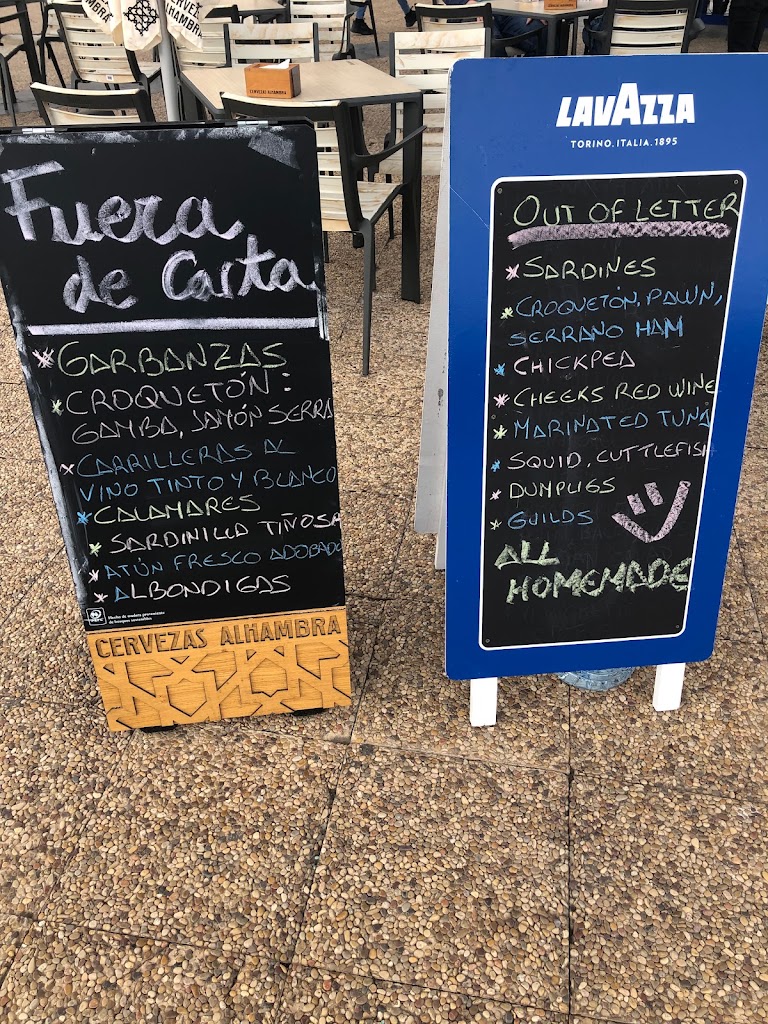 CERVEZAS ALHAMBRA
Fuera
de Carta
* GARBANZAS
* CROQUETÓN:
GAMBA, JAMÓN SERRA
* CARRILLERAS AL
VINO TINTO Y BLANCO
* CALAMARES
* SARDINILLA TIÑOSA
* ATÚN FRESCO ADOBADO
* ALBONDIGAS
CERVEZAS ALHAMBRA
LAVAZZA
TORINO, ITALIA, 1895
OUT OF LETTER
* SARDINES
* CROQUETÓN, PAWN,
SERRANO HAM
* CHICKPEA
* CHEEKS RED WINE
* MARINATED TUNA
* SQUID, CUTTLEFISH
* DUMPLIGS
* GUILDS
ALL
HOMEMADE